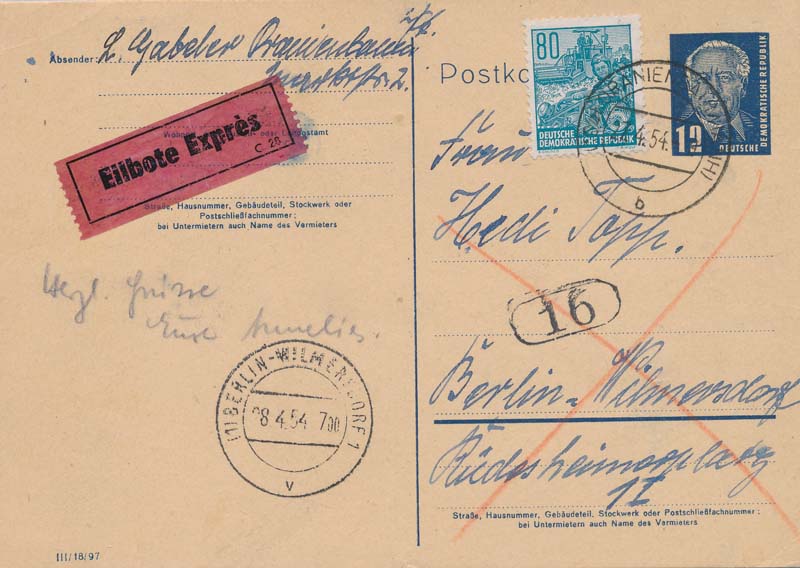 Absender: L. Gabeler Oranienbaum
Markstr. 2.
Eilbote Exprès
C 26
Straße, Hausnummer, Gebäudeteil, Stockwerk oder
Postschließfachnummer;
bei Untermietern auch Name des Vermieters
Herzl. Grüsse
Eure Annelies.
(1) BERLIN-WILMERSDORF 1
08.4.54. 700
v
III/18/97
80
DEUTSCHE
DEMOKRATISCHE REPUBLIK
12
DEUTSCHE
DEMOKRATISCHE REPUBLIK
4.54.
b
Frau
Hedi Topp.
16
Berlin-Wilmersdorf
Rüdesheimerplatz
11
Straße, Hausnummer, Gebäudeteil, Stockwerk oder Postschließfachnummer;
bei Untermietern auch Name des Vermieters